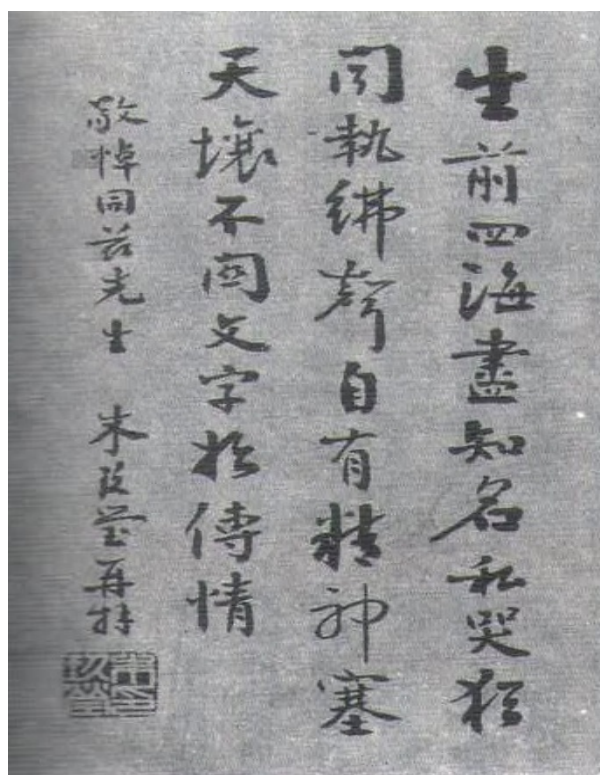 生前四海盡知名私哭猶
聞執紼聲自有精神塞
天壤不關文字始傳情
敬悼同茲先生 朱玖瑩再拜